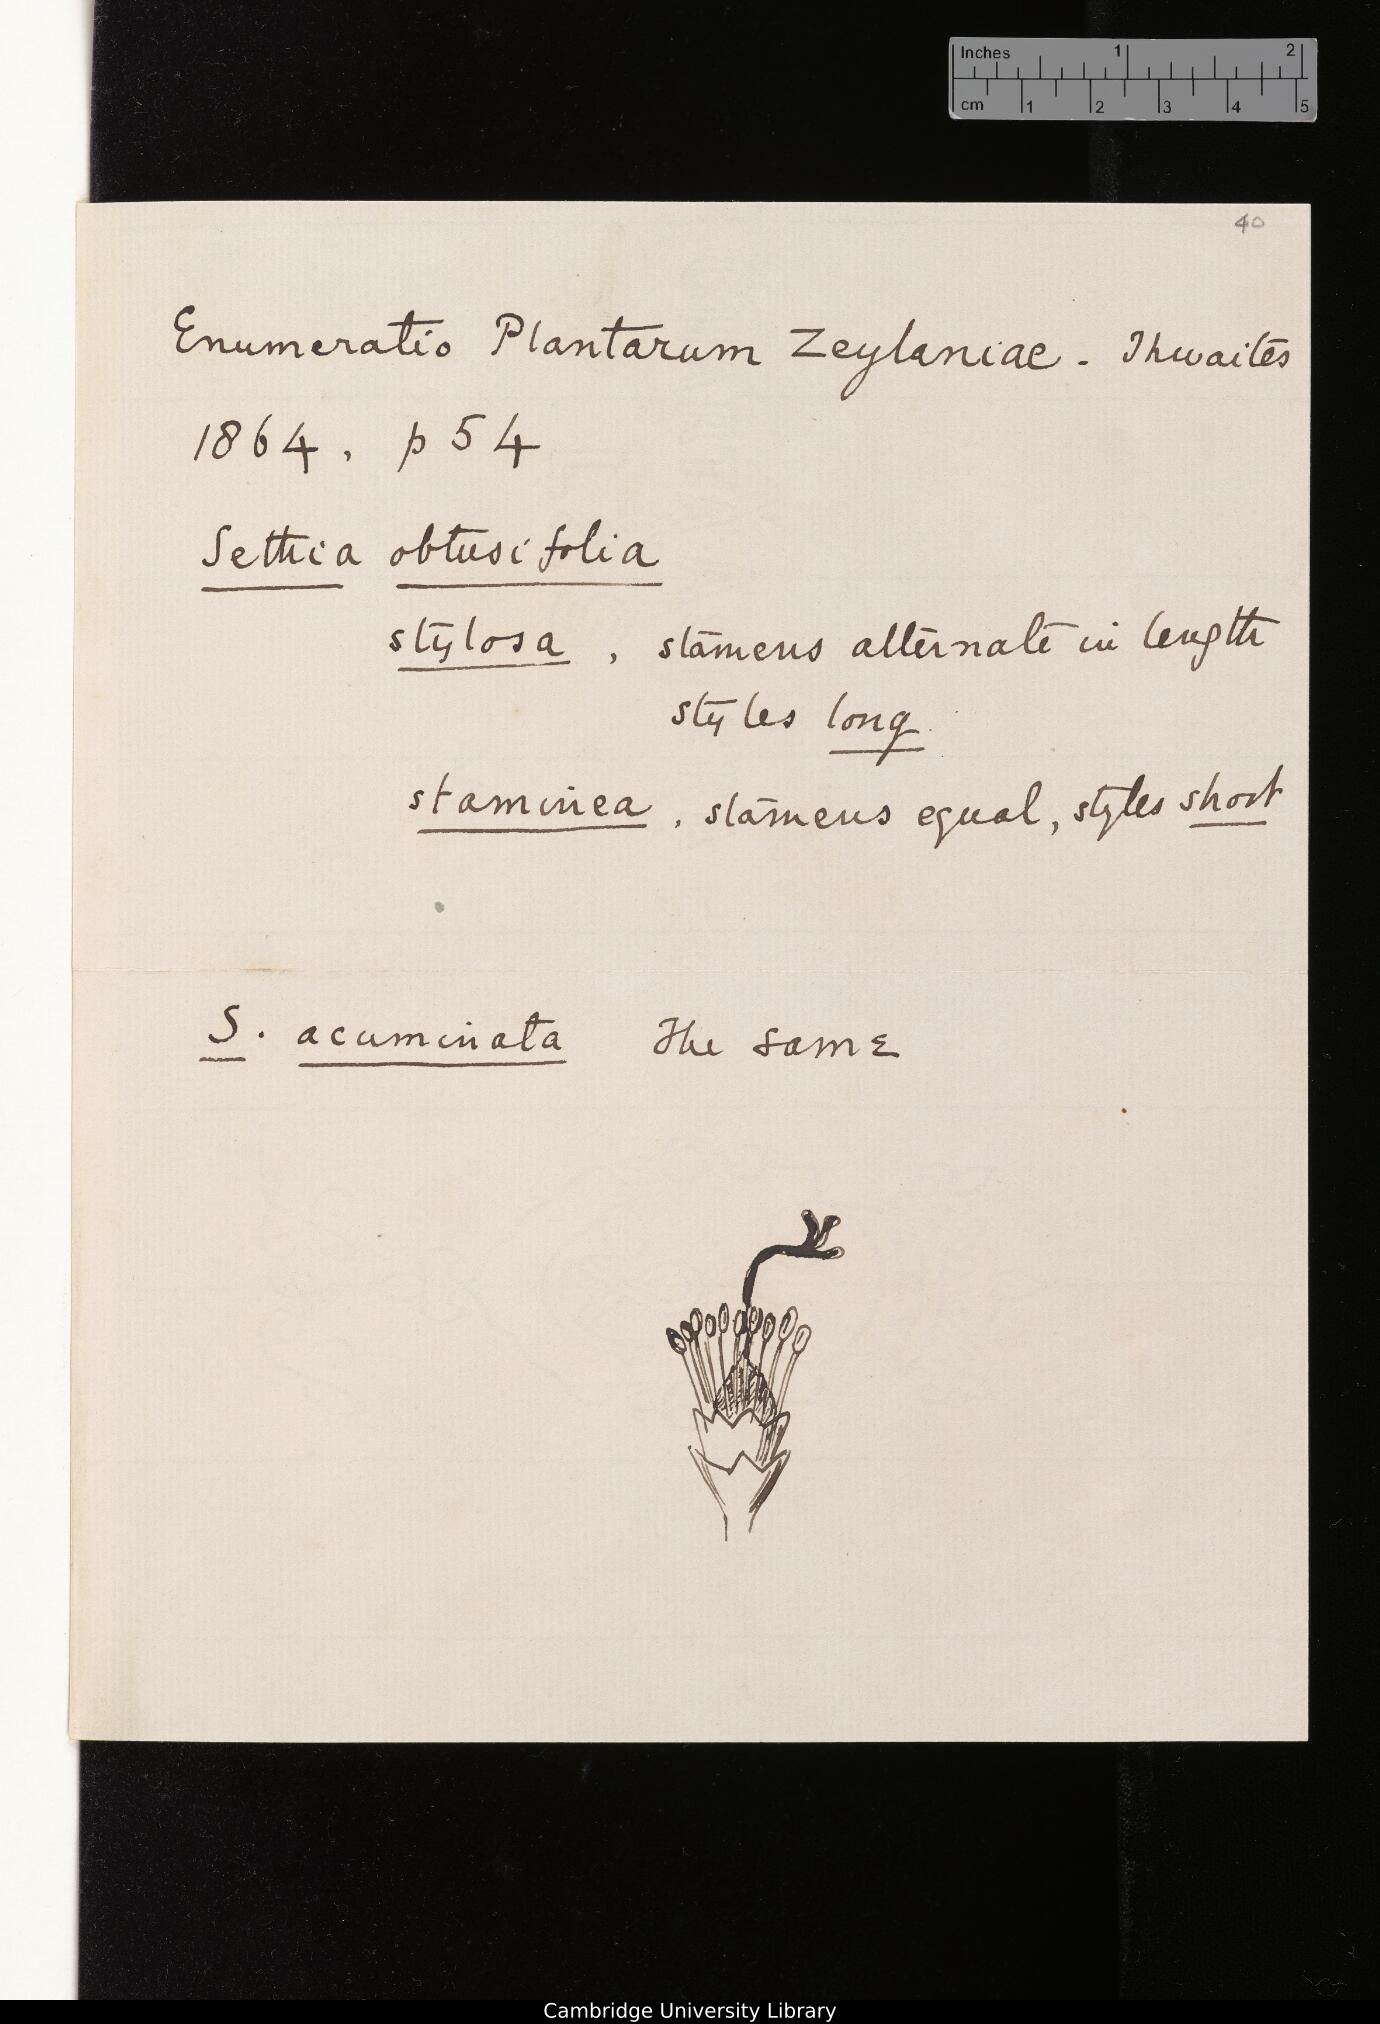 Inches 1 2
cm 1 2 3 4 5
40
Enumeratio Plantarum Zeylaniae - Thwaites
1864, p 54
Sethia obtusifolia
stylosa, stamens alternate in length
styles long.
staminea, stamens equal, styles short
S. acuminata The same
Cambridge University Library